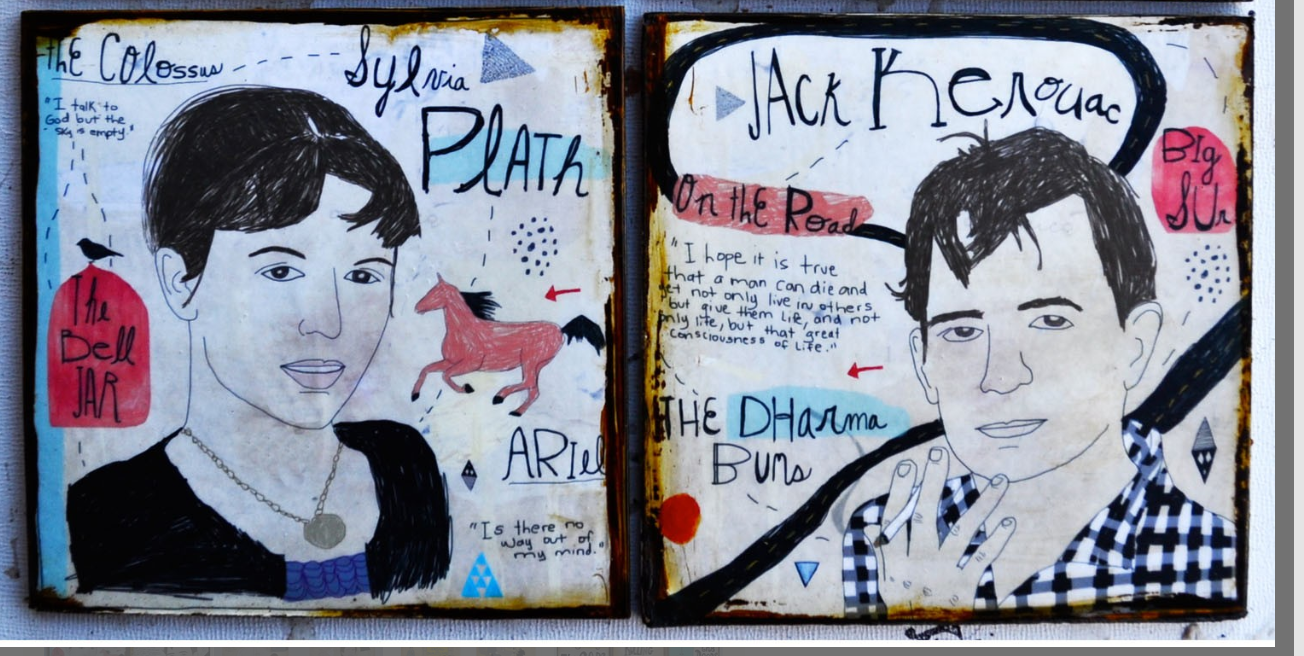 thE Colossus
Sylvia
PlATh
"I talk to
God but the
sky is empty."
The
Bell
JAR
ARIel
"Is there no
way out of
my mind."
JAcK Kerouac
On thE Road
BIg
SUr
"I hope it is true
that a man can die and
yet not only live in others
but give them life, and not
only life, but that great
consciousness of life."
THE DHarma
Bums